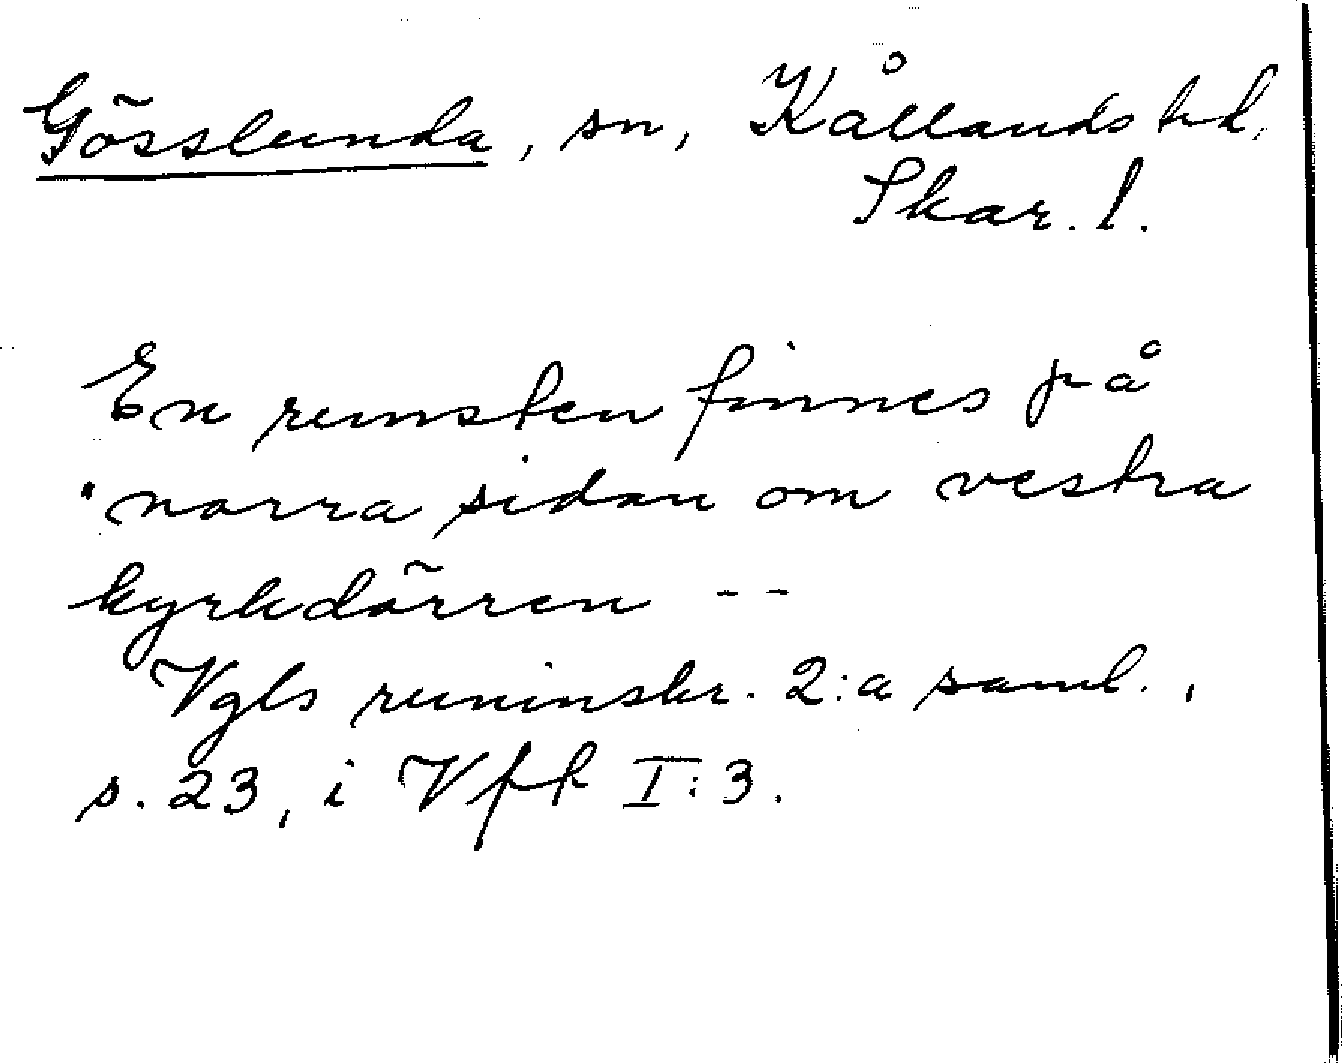 Gösslunda, sn, Kållands hd,
Skar. l.
En runsten finnes på
norra sidan om vestra
kyrkdörren --
Vgls runinskr. 2:a saml.,
s. 23, i Vff I:3.